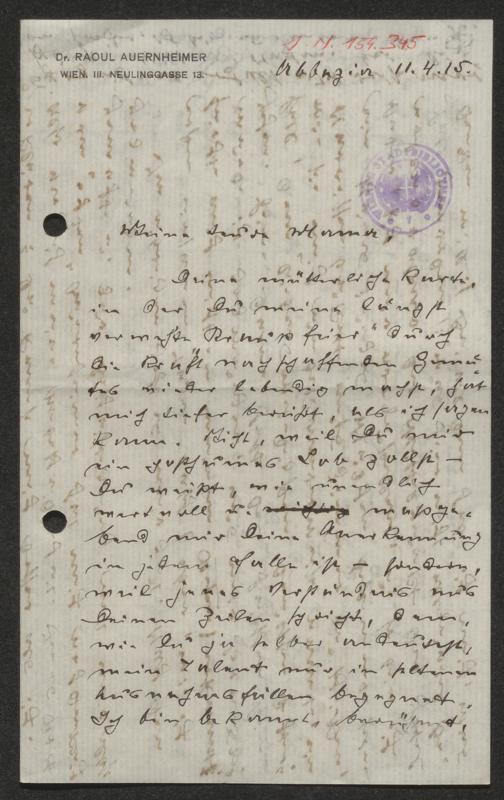 Dr. RAOUL AUERNHEIMER
WIEN, III. NEULINGGASSE 13.
J.N. 154.345
Abbazia 11.4.15.
Meine teure Mama,
Deine mütterliche Karte,
in der Du meine längst
verwehte "feier" durch
die Kraft nachschaffenden Gemü-
tes wieder lebendig machst, hat
mich tiefer berührt, als ich sagen
kann. Nicht, weil Du mir
ein posthumes Lob zollst –
Du weißt, wie unendlich
wertvoll u. wichtig maßge-
bend mir Deine Anerkennung
in jedem Falle ist – sondern,
weil jenes Verständnis aus
Deinen Zeilen spricht, dem,
wie Du ja selber andeutest,
mein Talent nur in seltenen
Ausnahmsfällen begegnet.
Ich bin bekannt, berühmt,